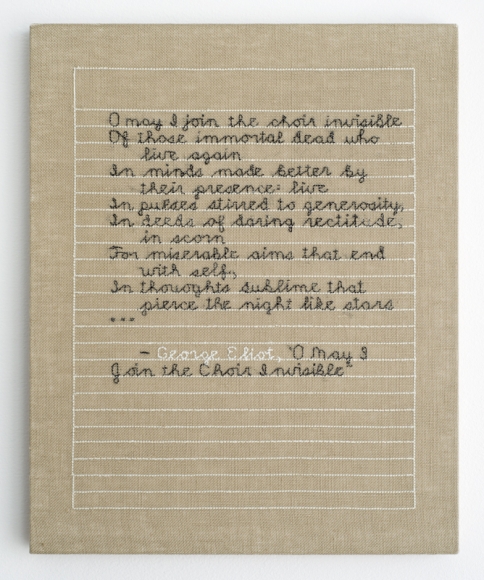 O may I join the choir invisible
Of those immortal dead who
live again
In minds made better by
their presence: live
In pulses stirred to generosity,
In deeds of daring rectitude,
in scorn
For miserable aims that end
with self,
In thoughts sublime that
pierce the night like stars
...
- George Eliot, "O May I
Join the Choir Invisible"